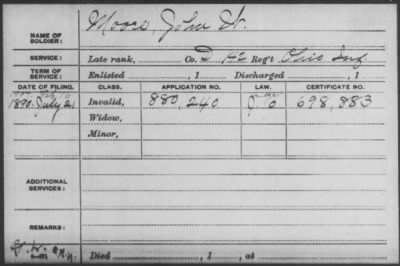 NAME OF SOLDIER: Moore, John W.
SERVICE: Late rank, Co. D, 142 Reg't Ohio Inf.
TERM OF SERVICE: Enlisted , 1 Discharged , 1
DATE OF FILING. CLASS. APPLICATION NO. LAW. CERTIFICATE NO.
1890. July 21 Invalid, 880,240 698,883
Widow,
Minor,
ADDITIONAL SERVICES:
REMARKS:
Died , 1 , at